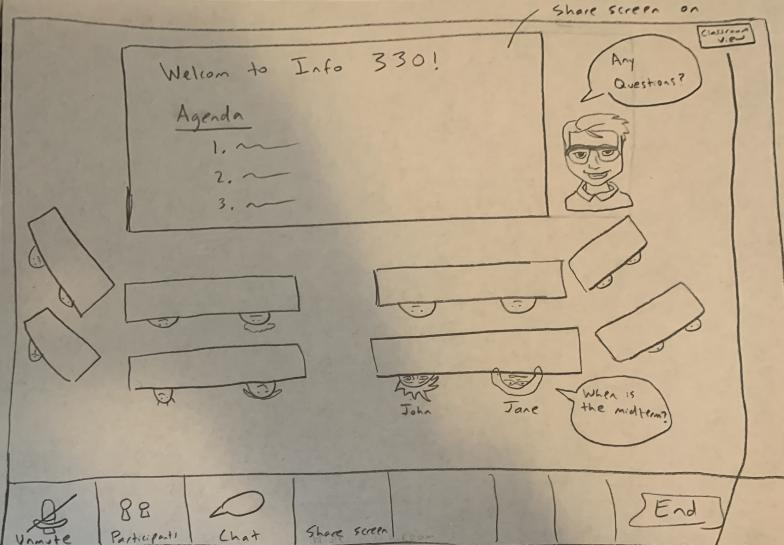 Share screen on
Classroom
View
Welcom to Info 330!
Any
Questions?
Agenda
1.
2.
3.
John
Jane
When is
the midterm?
Unmute
Participants
Chat
Share screen
End